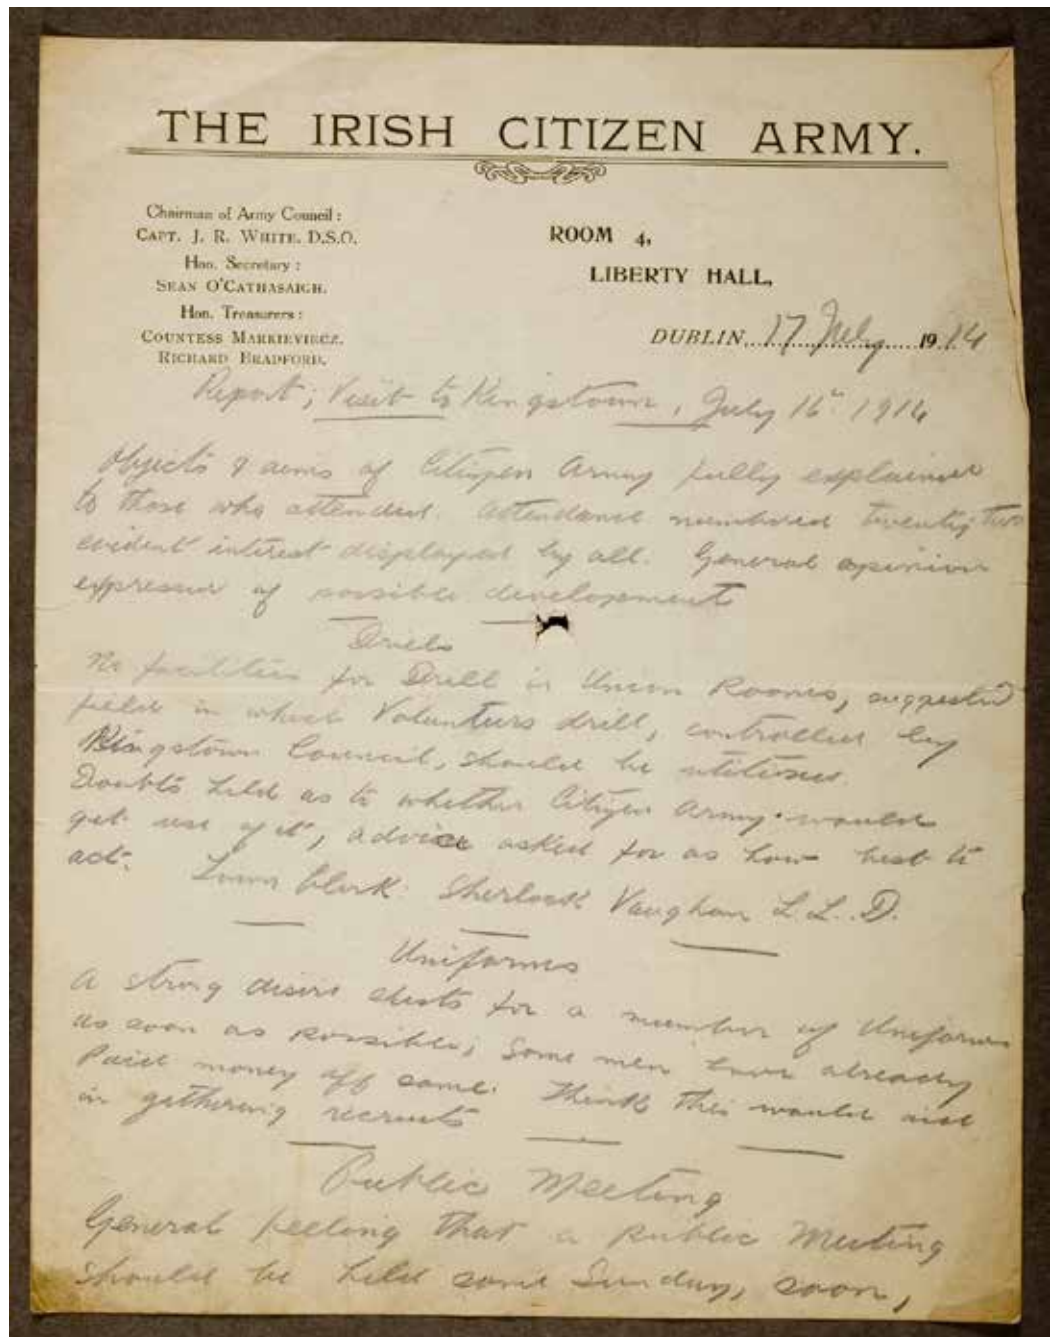 THE IRISH CITIZEN ARMY.
Chairman of Army Council:
CAPT. J. R. WHITE, D.S.O.
Hon. Secretary:
SEAN O'CATHASAIGH.
Hon. Treasurers:
COUNTESS MARKIEVICZ.
RICHARD BRADFORD.
ROOM 4,
LIBERTY HALL,
DUBLIN 17 July 1914
Report; Visit to Kingstown, July 16th 1914
Objects & aims of Citizen Army fully explained
to those who attended. Attendance numbered twenty two
evident interest displayed by all. General opinion
expressed of possible development
Drills
No facilities for Drill in Union Rooms, suggested
field in which Volunteers drill, controlled by
Kingstown Council, should be utilised.
Doubts held as to whether Citizen Army would
get use of it, advice asked for as how best to
act. Town Clerk. Sherlock Vaughan L.L.D.
Uniforms
A strong desire exists for a number of Uniforms
as soon as possible; Some men have already
Paid money off same. Think this would aid
in gathering recruits
Public Meeting
General feeling that a public Meeting
should be held some Sunday, soon,